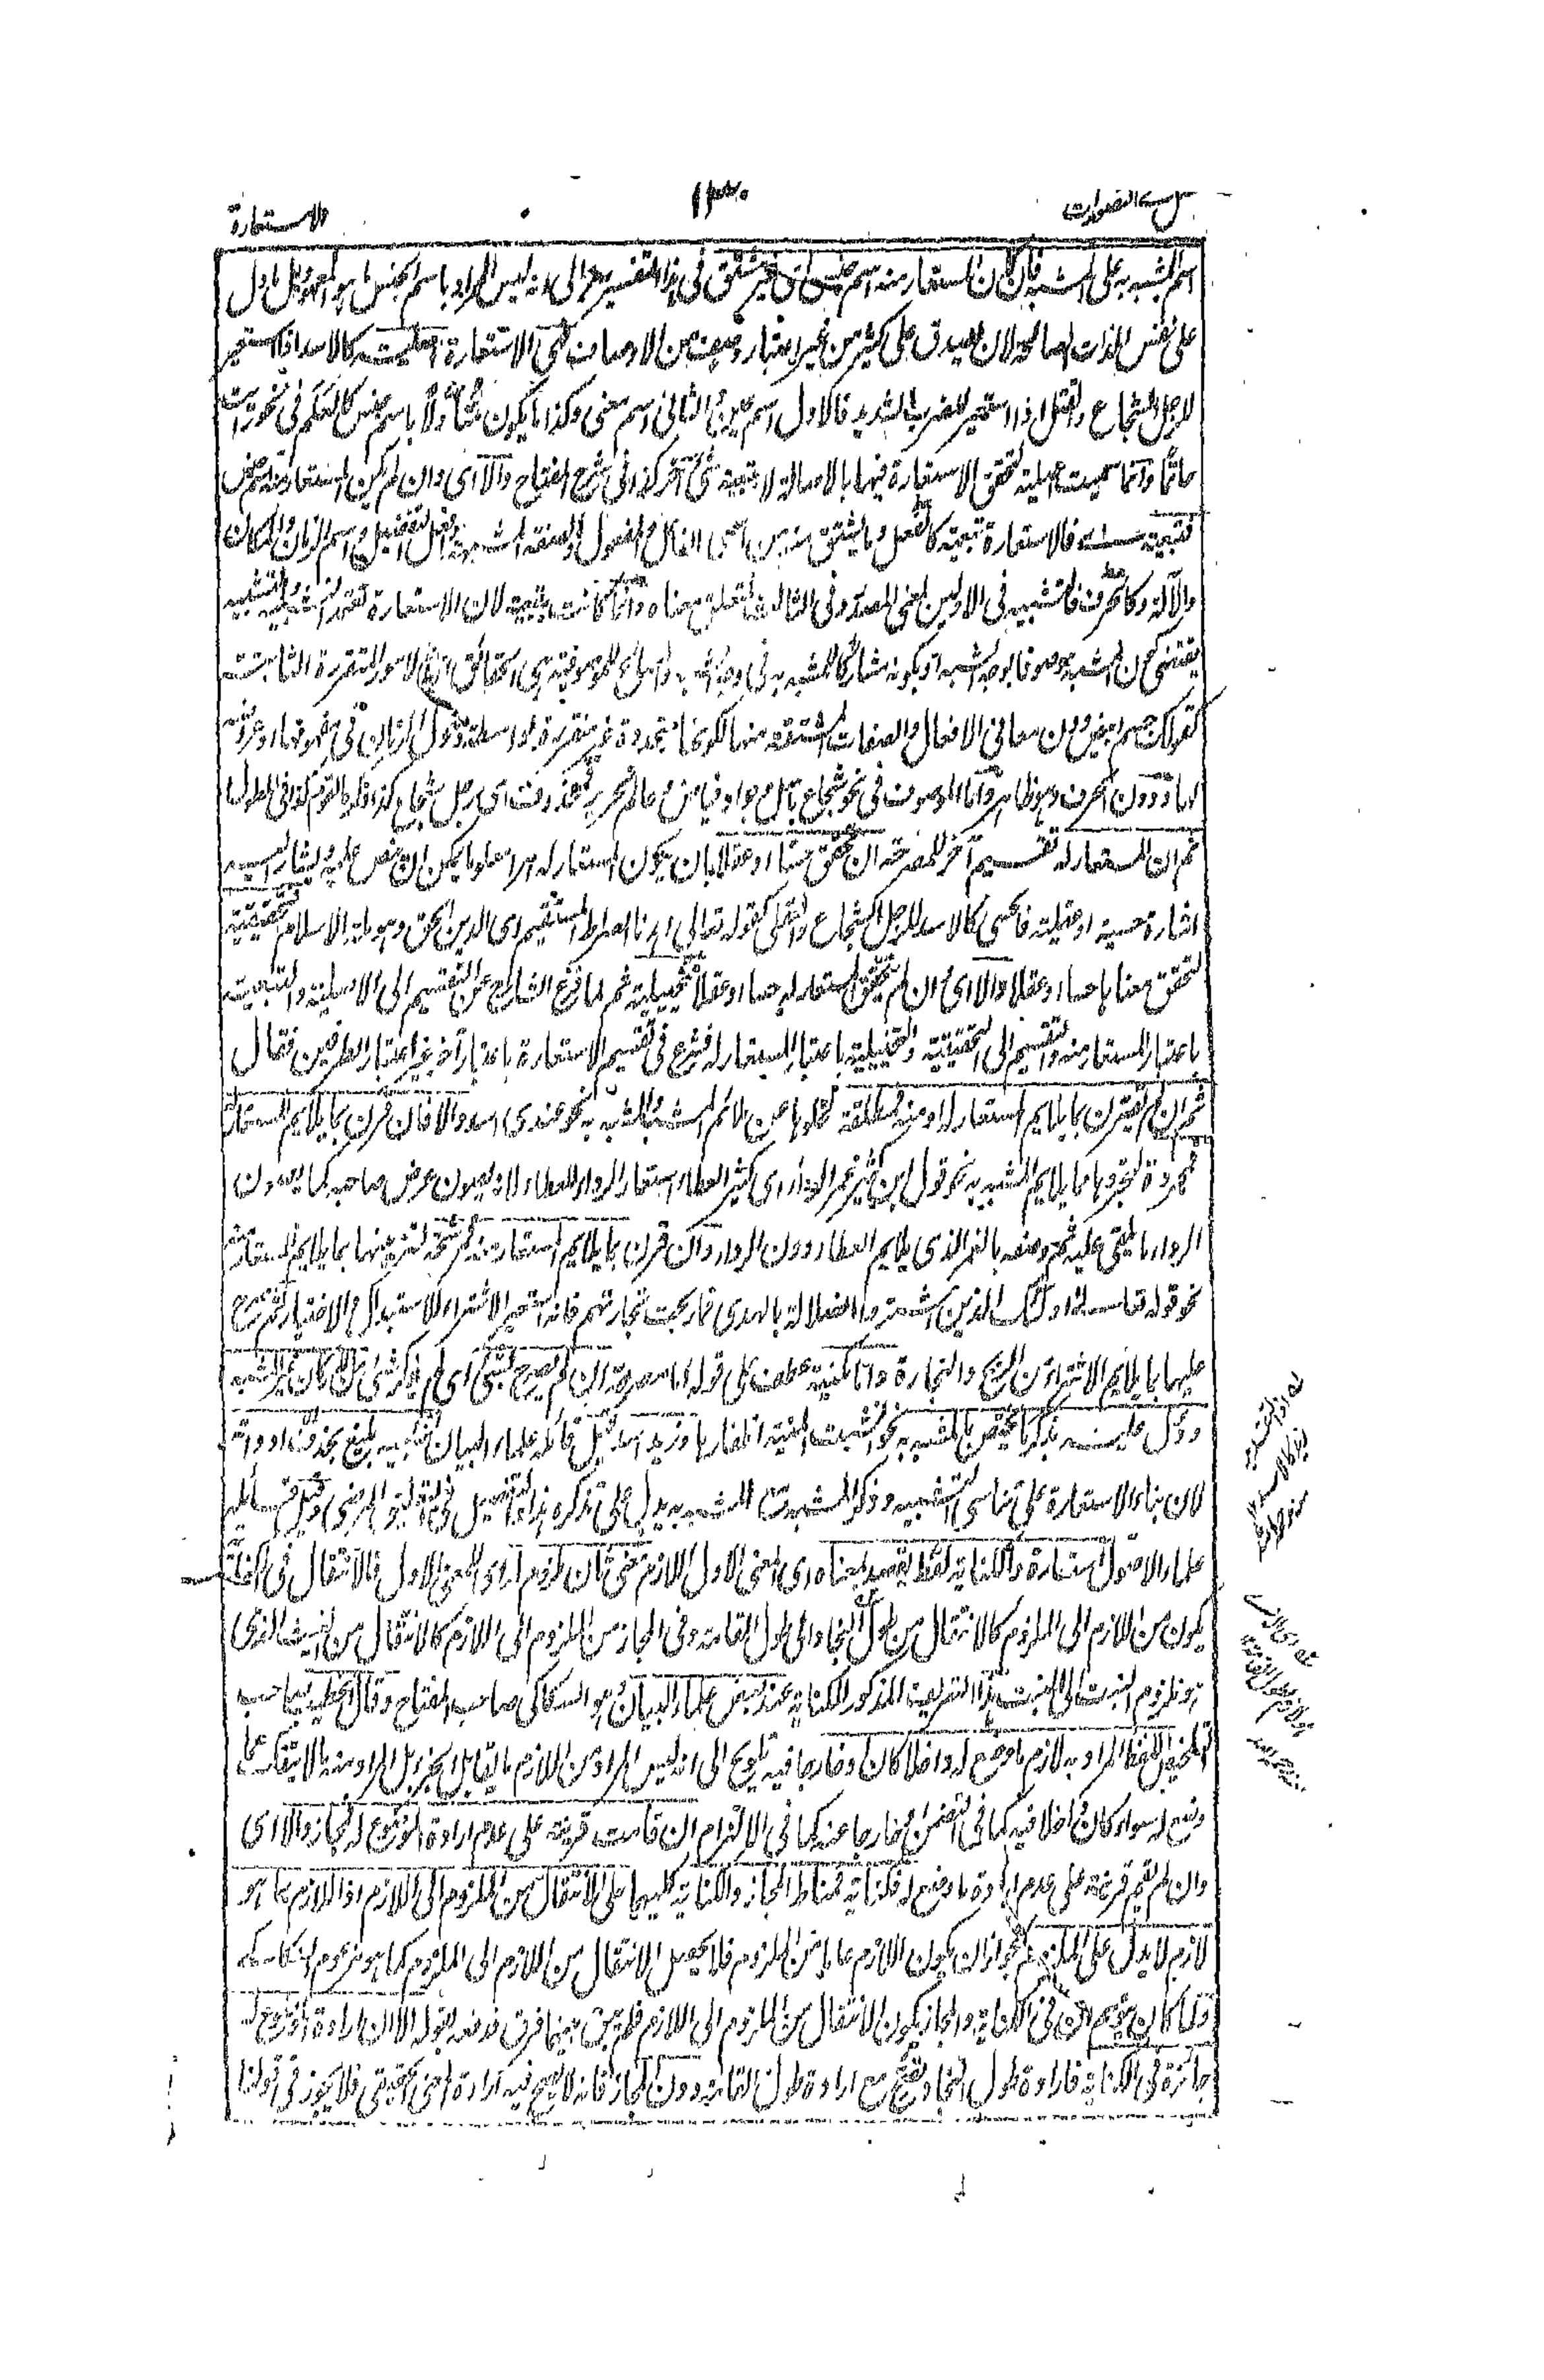 الاستعارة
١٣٠
التصورات
اسم المشبه به على المشبه فان كان المستعار منه اسم جنس اي غير مشتق في هذا التفسير رمز الى انه ليس المراد باسم الجنس ما هو المعهود بل ما دل
على نفس الذات الصالحة لان يصدق على كثيرين من غير اعتبار وصف من الاوصاف فهي الاستعارة اصلية كالاسد اذا استعير
للرجل الشجاع والقتل اذا استعير للضرب الشديد فالاول اسم عين والثاني اسم معنى وكذا ما يكون متأولا باسم جنس كالعلم في نحو رأيت
حاتما وانما سميت اصلية لتحقق الاستعارة فيها بالاصالة لا بتبعية شئ آخر كذا في شرح المفتاح والا اى وان لم يكن المستعار منه اسم جنس
فتبعية فالاستعارة تبعية كالفعل وما يشتق منه من اسمى الفاعل والمفعول والصفة المشبهة وافعل التفضيل واسم الزمان والمكان
والآلة وكالحرف فالتشبيه في الاولين لمعنى المصدر وفي الثالث لمتعلق معناه وانما كانت تبعية لان الاستعارة تعتمد التشبيه والتشبيه
يقتضى كون المشبه موصوفا بوجه الشبه او بكونه مشاركا للمشبه به في وجه الشبه وانما يصلح للموصوفية هى الحقائق اى الامور المتقررة الثابتة
كقولك جسم ابيض دون معانى الافعال والصفات المشتقة منها لكونها متجددة غير متقررة بواسطة دخول الزمان في مفهومها او عروضه
لها ودون الحرف وهو ظاهر واما الموصوف في نحو شجاع باسل وجواد فياض وعالم نحرير فمحذوف اى رجل شجاع كذا ذكره القوم كذا في المطول
ثم ان المستعار له تقسيم آخر للمصرحة ان تحقق حسا او عقلا بان يكون المستعار له امرا معلوما يمكن ان ينص عليه ويشار اليه
اشارة حسية او عقلية فالحسى كالاسد للرجل الشجاع والعقلى كقوله تعالى اهدنا الصراط المستقيم اى الدين الحق وهو ملة الاسلام فتحقيقية
لتحقق معناها حسا او عقلا والا اى وان لم يتحقق المستعار له حسا او عقلا فتخييلية ثم لما فرغ الشارح عن التقسيم الى الاصلية والتبعية
باعتبار المستعار منه والتقسيم الى التحقيقية والتخييلية باعتبار المستعار له فشرع في تقسيم الاستعارة باعتبار آخر غير اعتبار الطرفين فقال
ثم ان لم تقترن بما يلايم المستعار له او منه فمطلقة لخلوها عن ملائم المشبه والمشبه به نحو عندى اسد والا فان قرن بما يلايم المستعار له
فمجردة لتجردها مما يلايم المشبه به نحو قول ابن كثير غمر الرداء اى كثير العطاء استعار الرداء للعطاء لانه يصون عرض صاحبه كما يصون
الرداء ما يلقى عليه ثم وصفه بالغمر الذى يلايم العطاء دون الرداء وان قرن بما يلايم المستعار منه فمرشحة لترشيحها بما يلايم المستعار منه
نحو قوله تعالى اولئك الذين اشتروا الضلالة بالهدى فما ربحت تجارتهم فانه استعير الاشتراء للاستبدال والاختيار ثم فرع
عليها ما يلايم الاشتراء من الربح والتجارة واما مكنية عطف على قوله اما مصرحة ان لم يصرح بشئ اى لم يذكر شئ من الاركان غير المشبه
ودل عليه بذكر ما يختص بالمشبه به نحو انشبت المنية اظفارها وزيد اسد قيل قائله علماء البيان تشبيه بليغ بحذف اداته
لان بناء الاستعارة على تناسى التشبيه وذكر المشبه مع المشبه به يدل على تذكره
علماء الاصول استعارة والكناية لفظ يقصد بمعناه اى المعنى الاول اللازم معنى ثان ملزوم له اى للمعنى الاول فالانتقال في الكناية
يكون من اللازم الى الملزوم كالانتقال من طول النجاد الى طول القامة وفي المجاز من الملزوم الى اللازم كالانتقال من الغيث الذى
هو ملزوم النبت الى النبت هذا التعريف المذكور للكناية عند بعض علماء البيان وهو السكاكى صاحب المفتاح وقال الخطيب صاحب
التلخيص اللفظ المراد به لازم ما وضع له داخلا كان او خارجا فيه تلويح الى انه ليس المراد من اللازم ما يقابل الجزء بل المراد منه ما لا ينفك عما
وضع له سواء كان داخلا فيه كما في التضمن او خارجا عنه كما في الالتزام ان قامت قرينة على عدم ارادة الموضوع له فمجاز والا اى
وان لم تقم قرينة على عدم ارادة ما وضع له فكناية فمناط المجاز والكناية كليهما على الانتقال من الملزوم الى اللازم اذ اللازم بما هو
لازم لا يدل على الملزوم لجواز ان يكون اللازم عاما من الملزوم فلا يحصل الانتقال من اللازم الى الملزوم كما هو مزعوم السكاكى
ولما كان يتوهم ان في الكناية والمجاز يكون الانتقال من الملزوم الى اللازم فلم يبق بينهما فرق فدفعه بقوله الا ان ارادة الموضوع له
جائزة في الكناية فارادة طول النجاد تصح مع ارادة طول القامة دون المجاز فانه لا يصح فيه ارادة المعنى الحقيقى فلا يجوز في قولنا